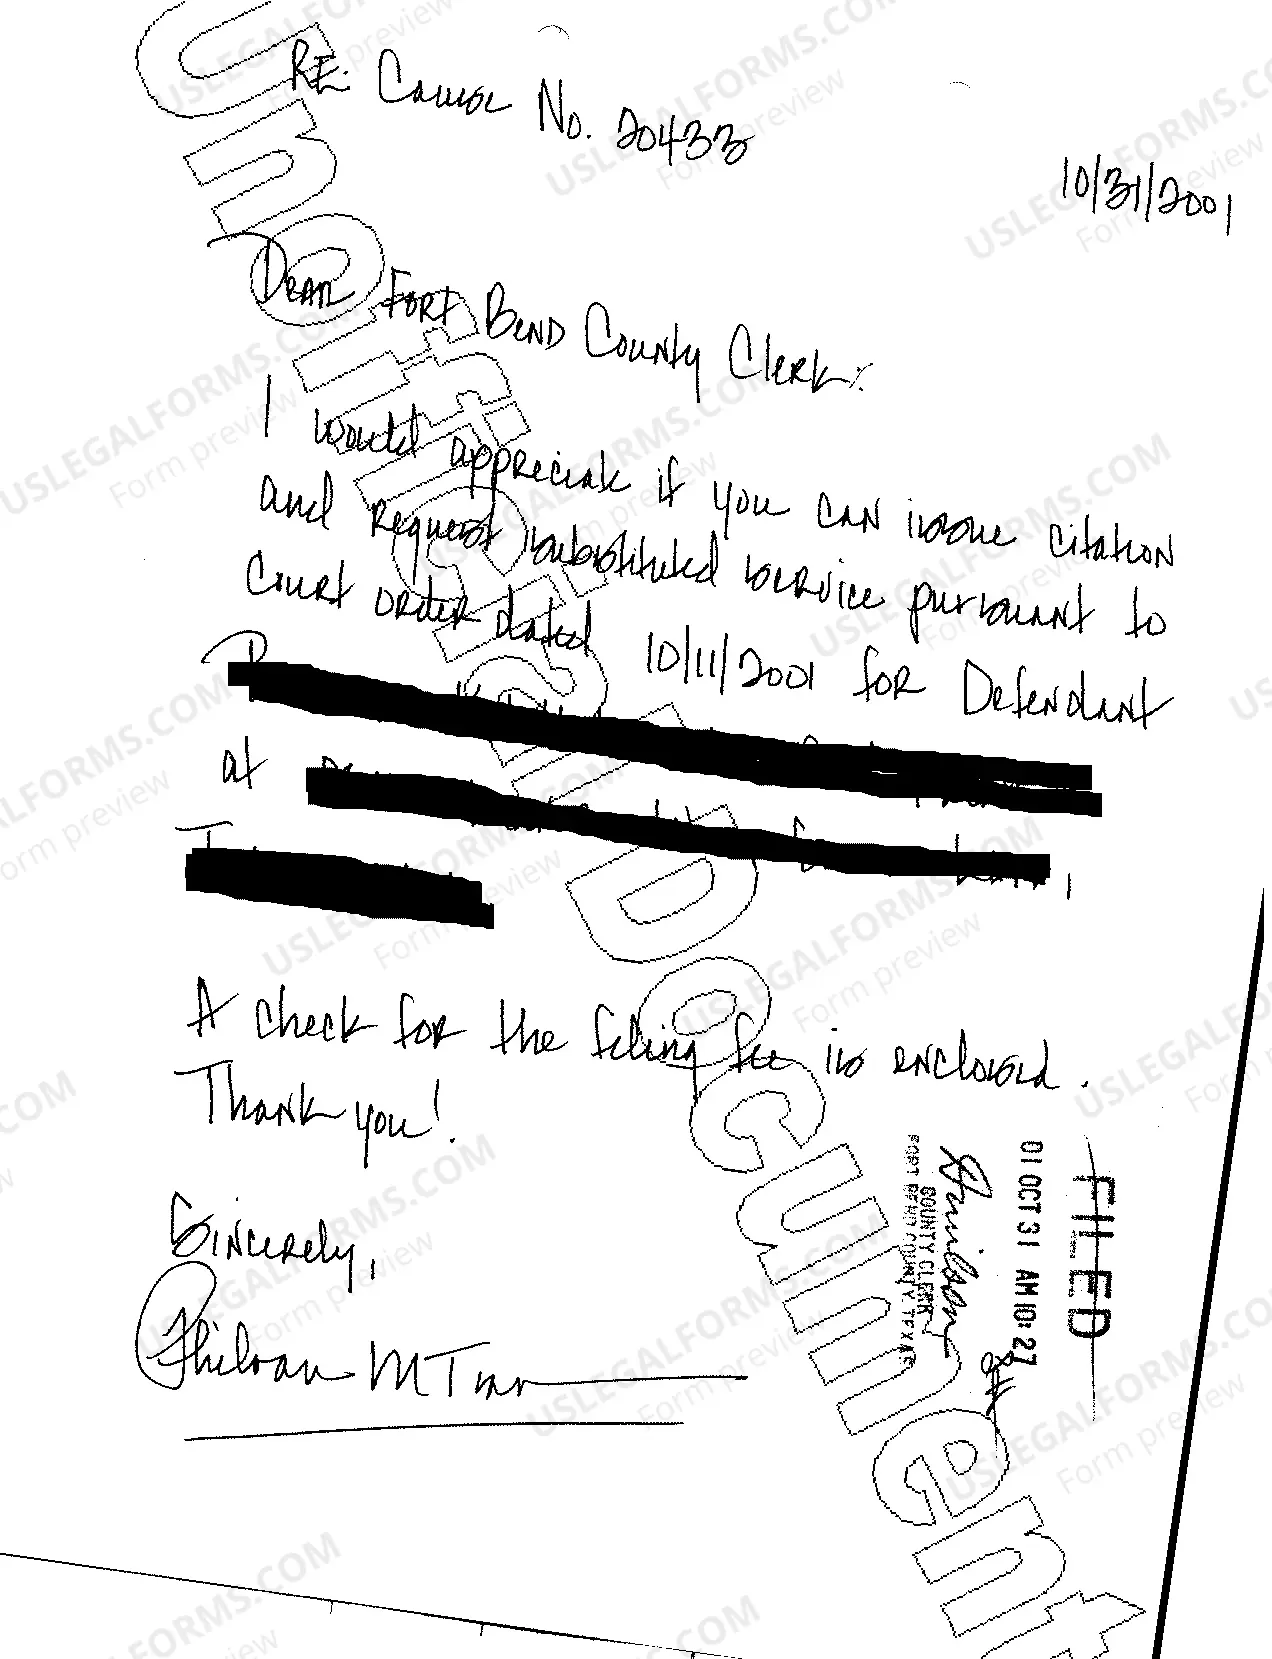 RE: Cause No. 20433
10/31/2001
Dear Fort Bend County Clerk:
I would appreciate if you can issue citation
and request substituted service pursuant to
Court order dated 10/11/2001 for Defendant
at
A check for the filing fee is enclosed.
Thank you!
Sincerely,
M Tran
FILED
01 OCT 31 AM 10:27
COUNTY CLERK
FORT BEND COUNTY TEXAS
Unofficial Document
USLEGALFORMS.COM
Form preview